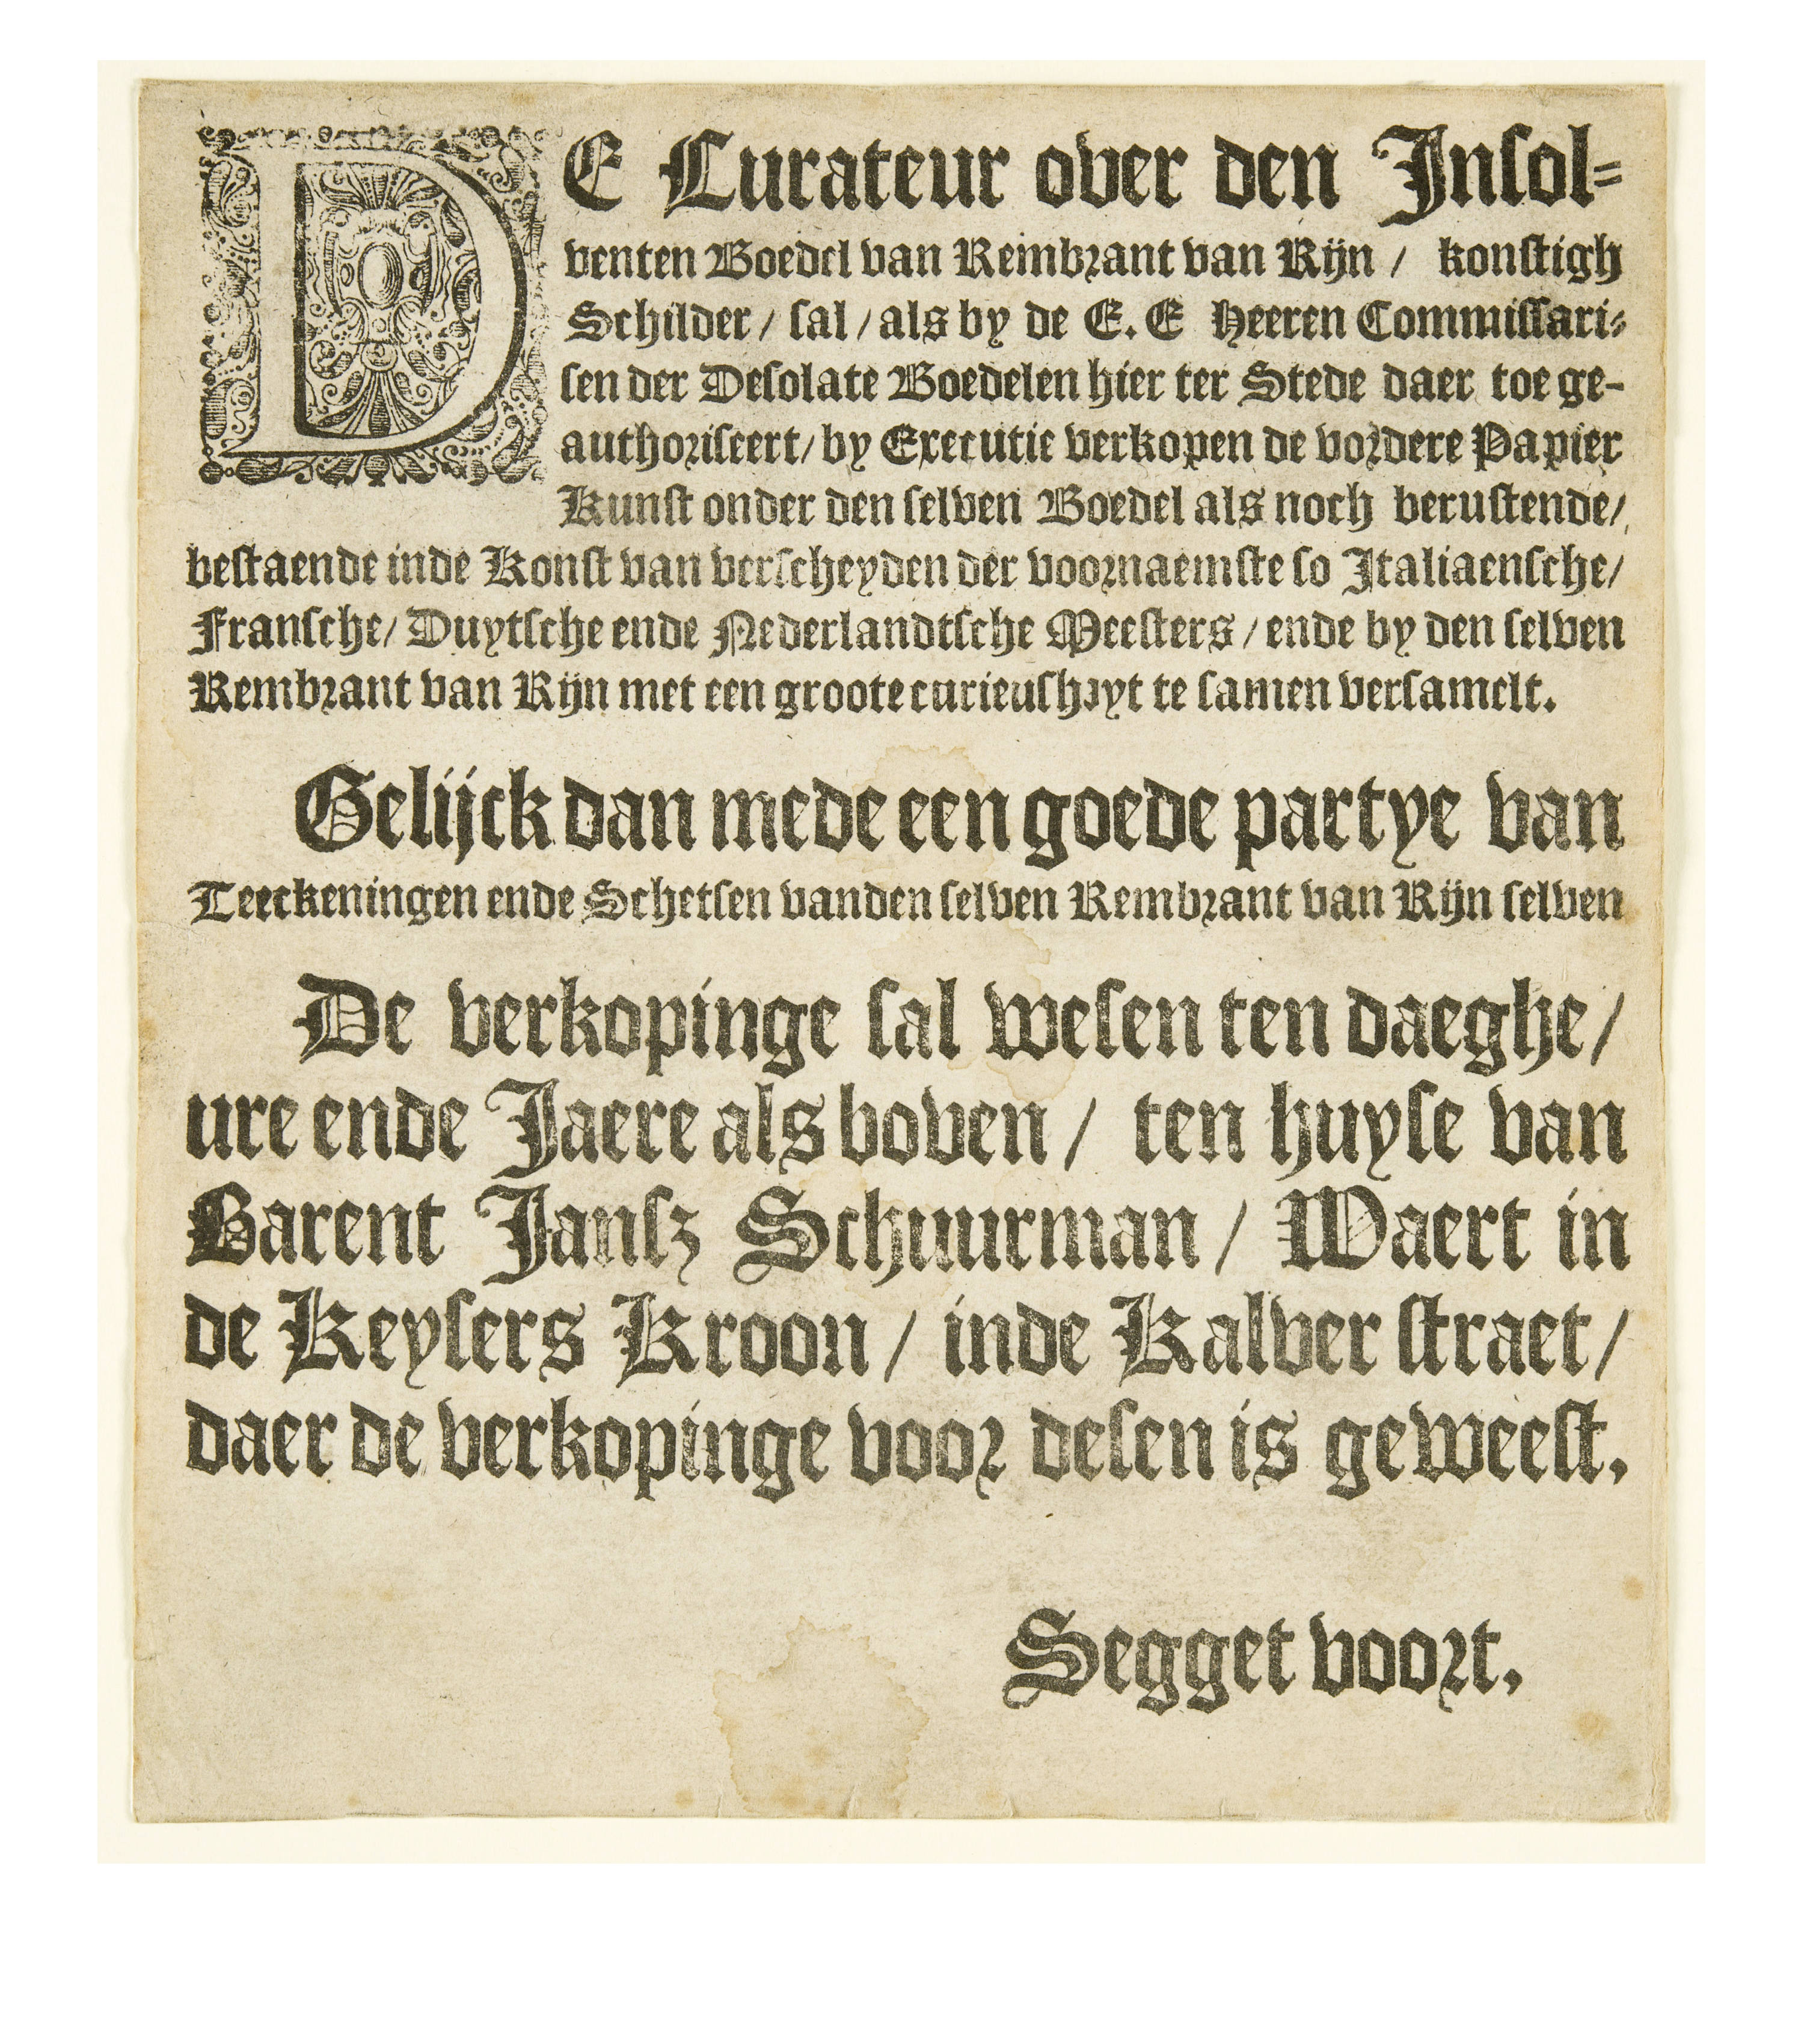 DE Curateur over den Insol=
venten Boedel van Rembrant van Rijn / konstigh
Schilder / sal / als by de E. E Heeren Commissari=
sen der Desolate Boedelen hier ter Stede daer toe ge-
authoriseert / by Executie verkopen de vordere Papier
Kunst onder den selven Boedel als noch berustende /
bestaende inde Konst van verscheyden der voornaemste so Italiaensche /
Fransche / Duytsche ende Nederlandtsche Meesters / ende by den selven
Rembrant van Rijn met een groote curieusheyt te samen versamelt.
Gelijck dan mede een goede partye van
Teeckeningen ende Schetsen vanden selven Rembrant van Rijn selven
De verkopinge sal wesen ten daeghe /
ure ende Jaere als boven / ten huyse van
Barent Jansz Schuurman / Waert in
de Keysers Kroon / inde Kalver straet /
daer de verkopinge voor desen is geweest,
Segget voort,